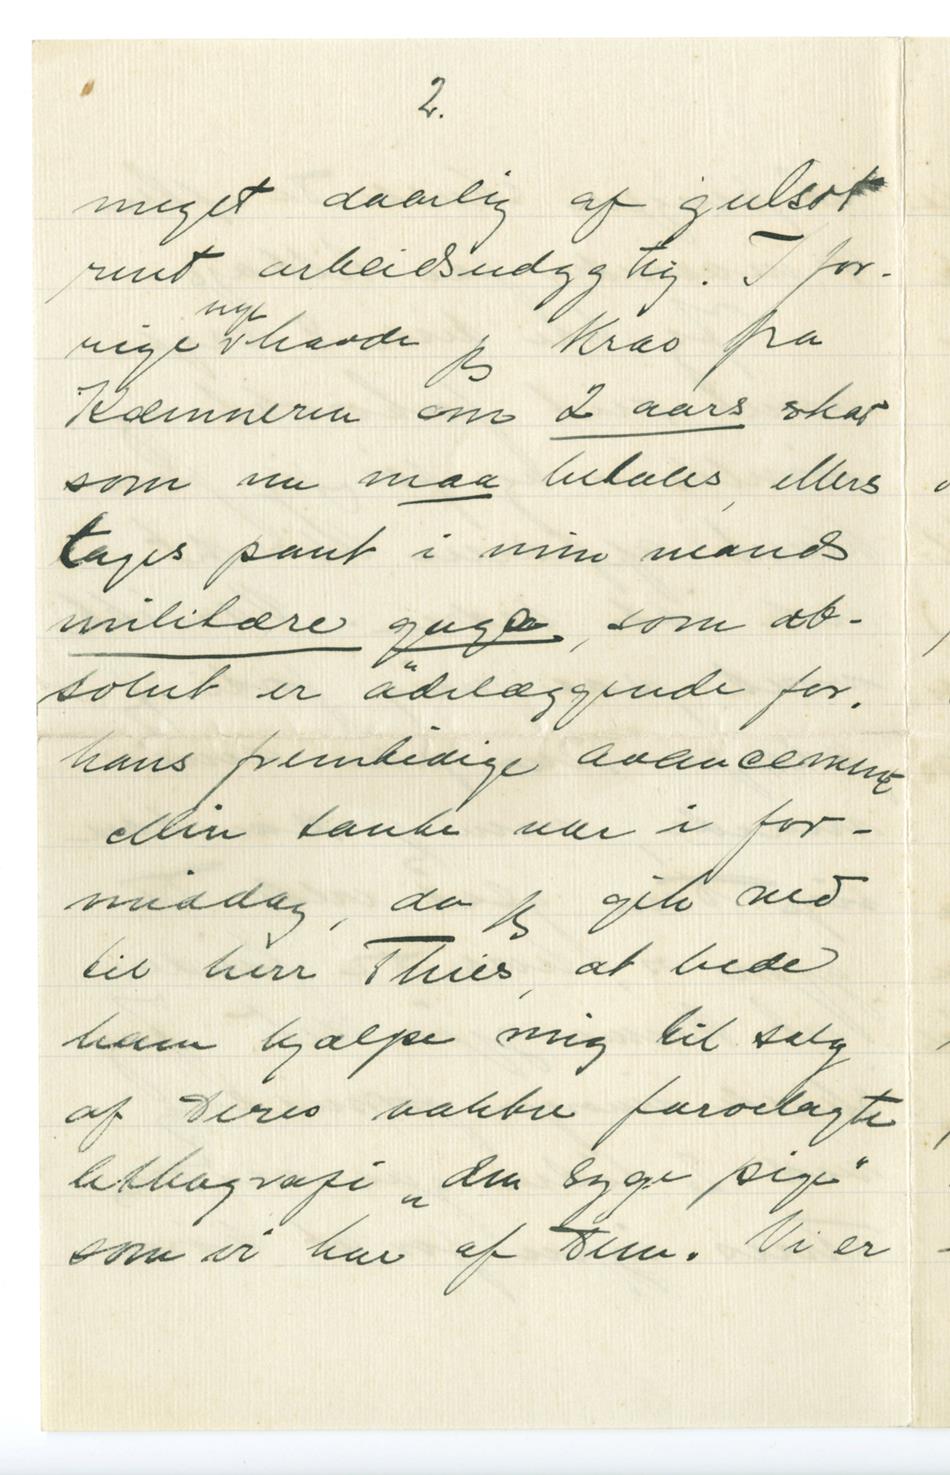 2.
meget daarlig af gulsot
rent arbeidsudygtig. I for-
rige uge havde jeg krav fra
Kæmneren om 2 aars skat
som nu maa betales, ellers
tages pant i min mands
militære gage, som ab-
solut er ödelæggende for
hans fremtidige avancement
Min tanke var i for-
middag, da jeg gik ned
til herr Thiis, at bede
ham hjælpe mig til salg
af Deres vakkre farvelagte
lithografi „den syge pige"
som vi har af Dem. Vi er